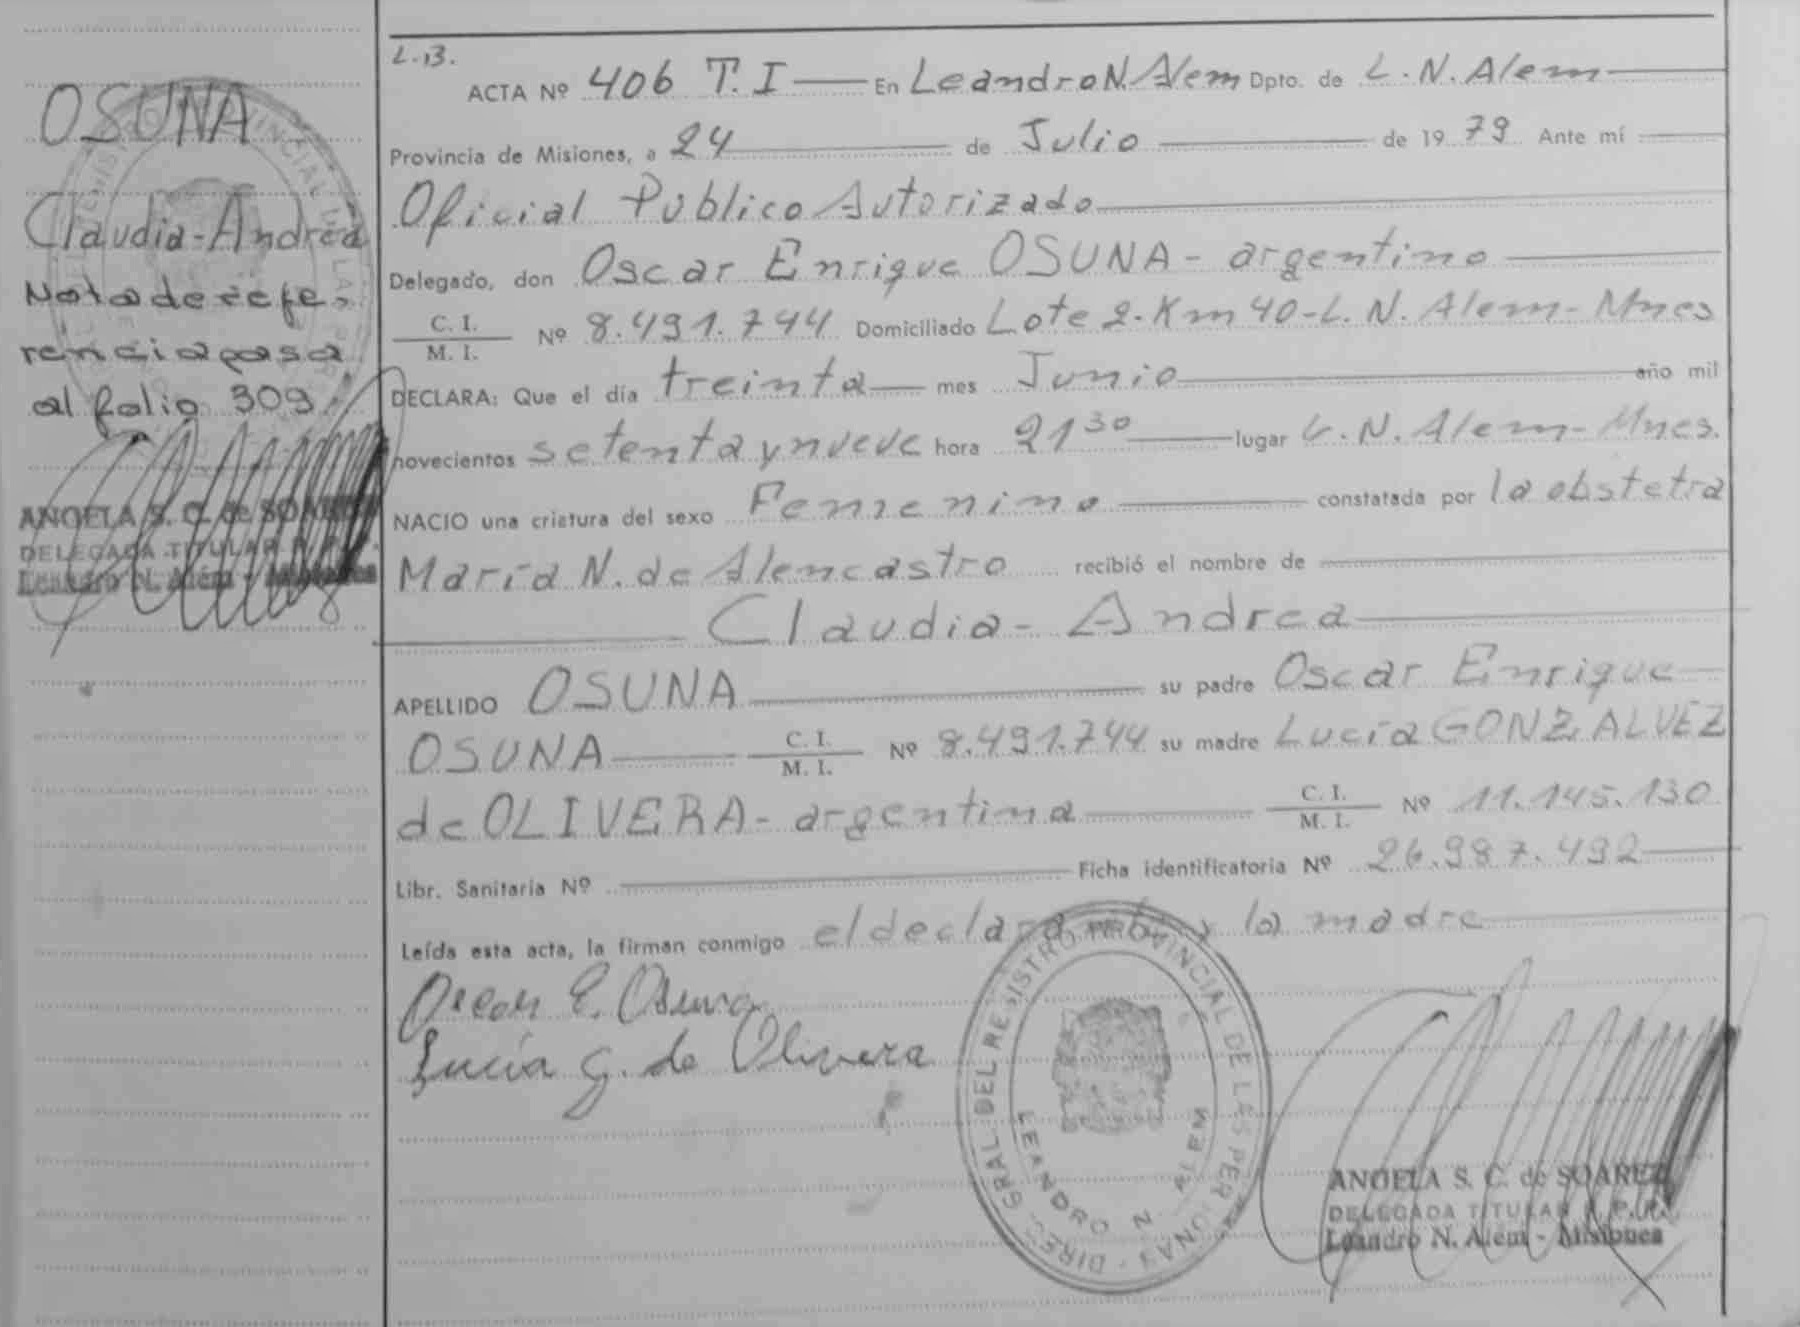 OSUNA
Claudia-Andrea
Nota de refe-
rencia pasa
al folio 309
ANGELA S. C. de SOAREZ
DELEGADA TITULAR R. P.
Leandro N. Alem - Misiones
L.13.
ACTA Nº 406 T. I En Leandro N. Alem Dpto. de L. N. Alem
Provincia de Misiones, a 24 de Julio de 1979 Ante mí
Oficial Público Autorizado
Delegado, don Oscar Enrique OSUNA - argentino
C. I.
M. I. Nº 8.491.744 Domiciliado Lote 2-Km 40-L. N. Alem-Mnes
DECLARA: Que el día treinta mes Junio año mil
novecientos setenta y nueve hora 21 30 lugar L. N. Alem-Mnes.
NACIO una criatura del sexo Femenino constatada por la obstetra
María N. de Alencastro recibió el nombre de
Claudia-Andrea
APELLIDO OSUNA su padre Oscar Enrique
OSUNA C. I.
M. I. Nº 8.491.744 su madre Lucía GONZALVEZ
de OLIVERA - argentina C. I.
M. I. Nº 11.145.130
Libr. Sanitaria Nº Ficha identificatoria Nº 26.987.492
Leída esta acta, la firman conmigo el declarante y la madre
Oscar E. Osuna
Lucía G. de Olivera
DIREC. GRAL DEL REGISTRO PROVINCIAL DE LAS PERSONAS
LEANDRO N. ALEM
ANGELA S. C. de SOAREZ
DELEGADA TITULAR R. P. P.
Leandro N. Alem - Misiones